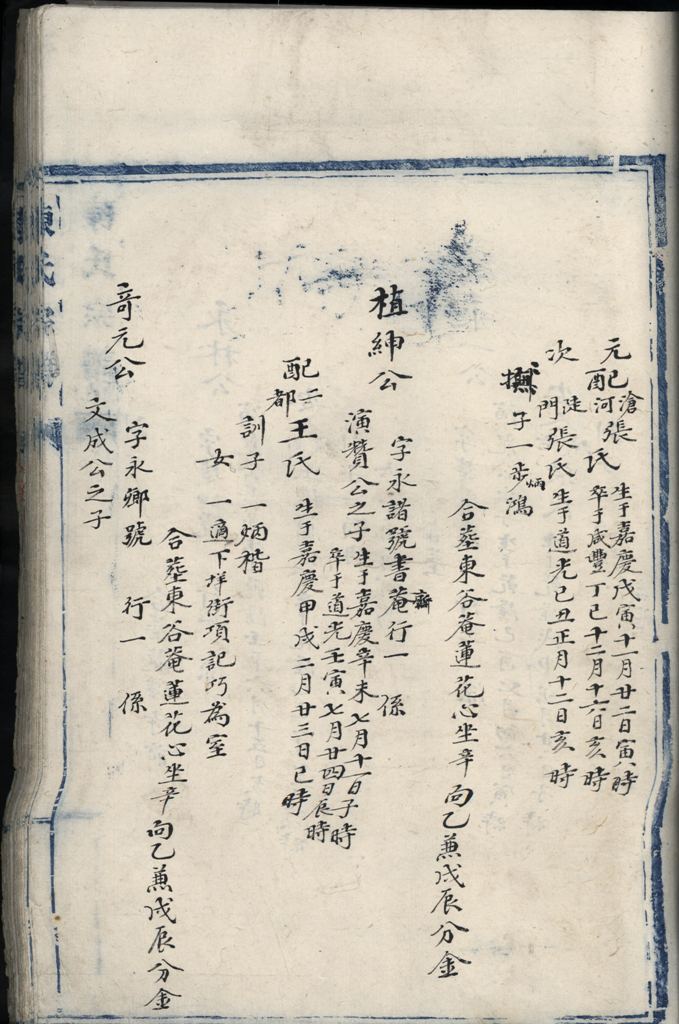 元配滄河張氏
生于嘉慶戊寅十一月廿二日寅時
卒于咸豐丁巳十二月十六日亥時
次陡門張氏生于道光己丑正月十二日亥時
撫子一步鴻炳
合葬東谷菴蓮花心坐辛向乙兼戌辰分金
植紳公
字永諸號書菴齋行一 係
演贊公之子生于嘉慶辛未七月十一日子時
卒于道光壬寅七月廿四日辰時
配二都王氏生于嘉慶甲戌二月廿三日巳時
訓子一炳楷
女一適下垟街項記巧為室
合葬東谷菴蓮花心坐辛向乙兼戌辰分金
奇元公
字永卿號 行一 係
文成公之子
陳氏宗譜